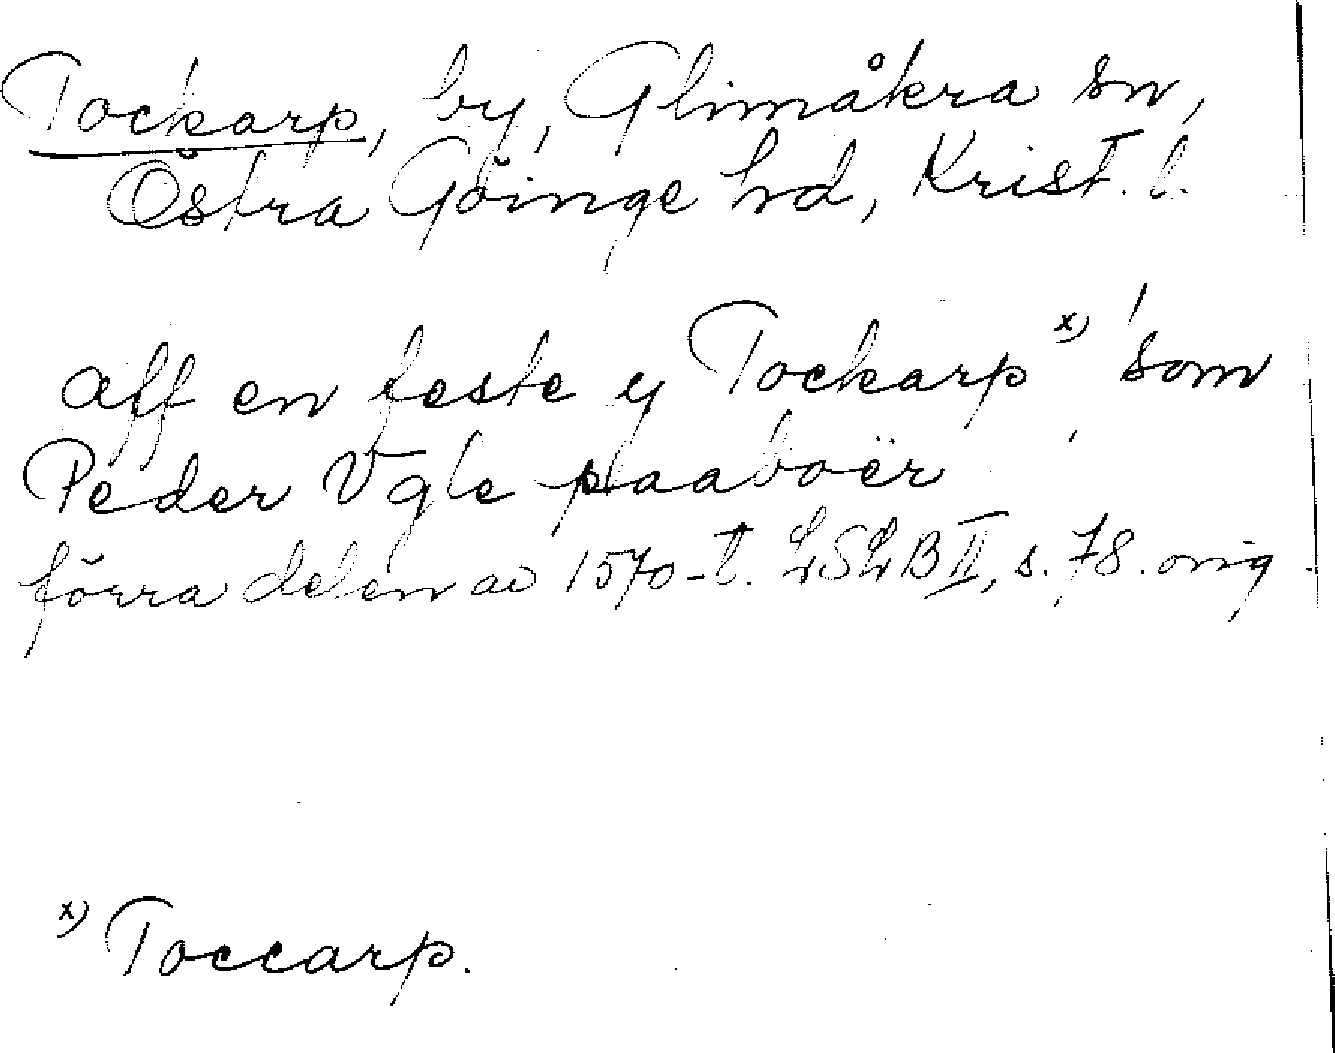 Tockarp, by, Glimåkra sn,
Östra Göinge hd, Krist. l.
aff en feste y Tockarp x) som
Peder Vgle paaboër
förra delen av 1570-t. LSLB II, s. 78. orig.
x) Toccarp.